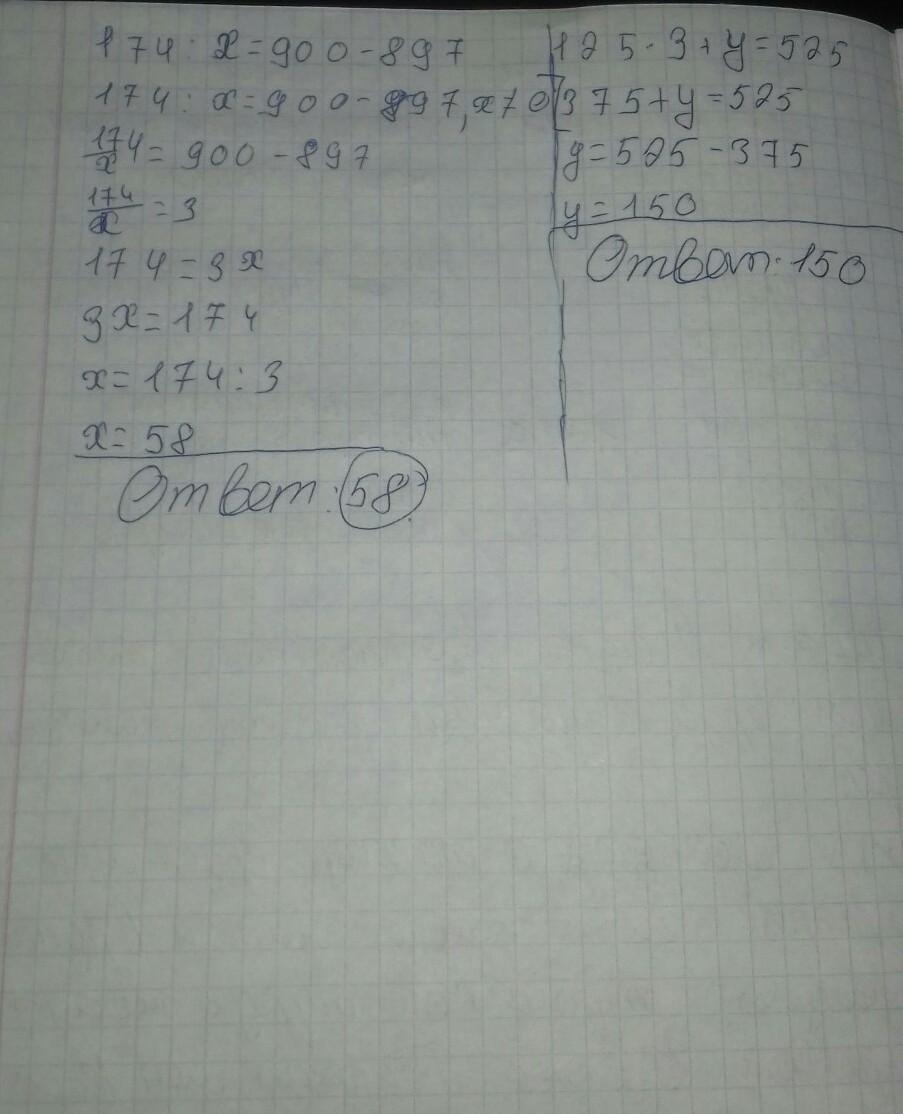 174 : x = 900 - 897
174 : x = 900 - 897, x ≠ 0
174/x = 900 - 897
174/x = 3
174 = 3x
3x = 174
x = 174 : 3
x = 58
Ответ: 58
125 · 3 + y = 525
375 + y = 525
y = 525 - 375
y = 150
Ответ: 150